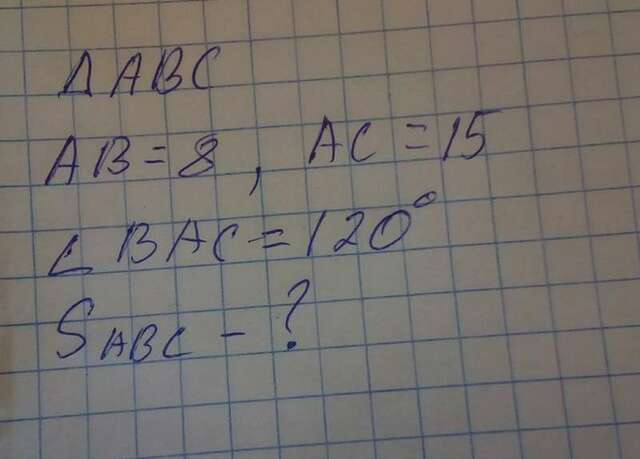 Δ ABC
AB = 8, AC = 15
∠ BAC = 120°
S ABC - ?